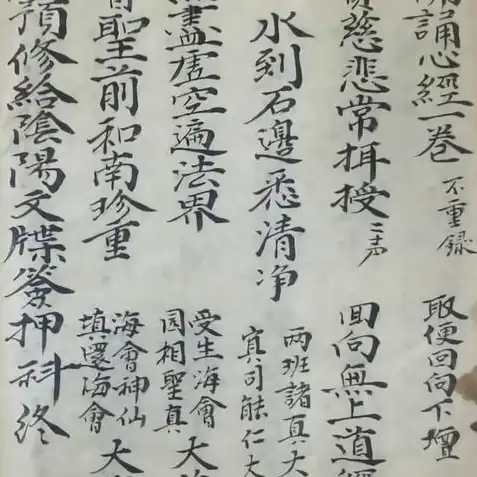 誦心經一卷 不重録 取便回向下壇
慈悲常拜授 三声 回向無上道經
水到石邊悉清净 两班諸真大 寘司能仁大
盡虛空遍法界 受生海會 园相聖真 大
聖前和南珍重 海會神仙 填還海會 大
預修給陰陽文牒簽押科终